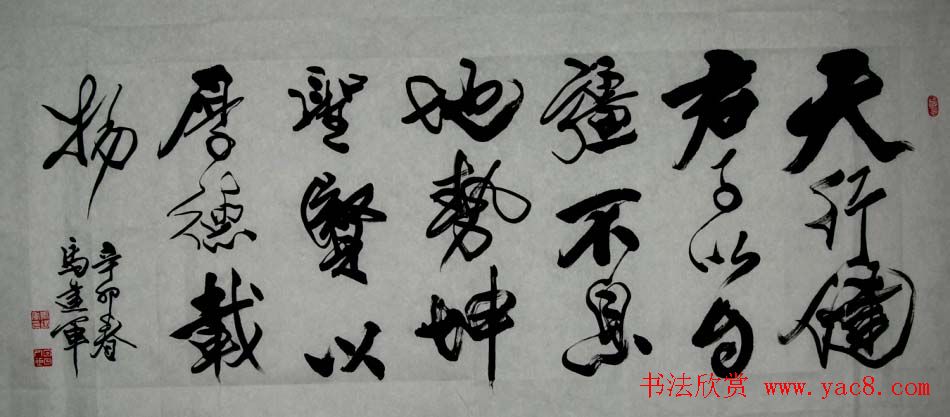 天行健
君子以自
彊不息
地勢坤
聖賢以
厚德載
物
辛卯春
馬進軍
书法欣赏 www.yac8.com